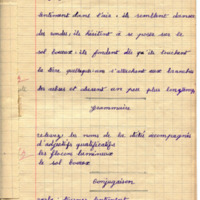 lentement dans l'air ; ils semblent danser
les rondes, ils hésitent à se poser sur le
sol boueux ; ils fondent dès qu'ils touchent
la terre, quelques-uns s'attachent aux branches
les arbres et durent un peu plus longtemps
grammaire
relevez les noms de la dictée accompagnés
d'adjectifs qualificatifs
les flocons lumineux
le sol boueux
conjugaison
lentement